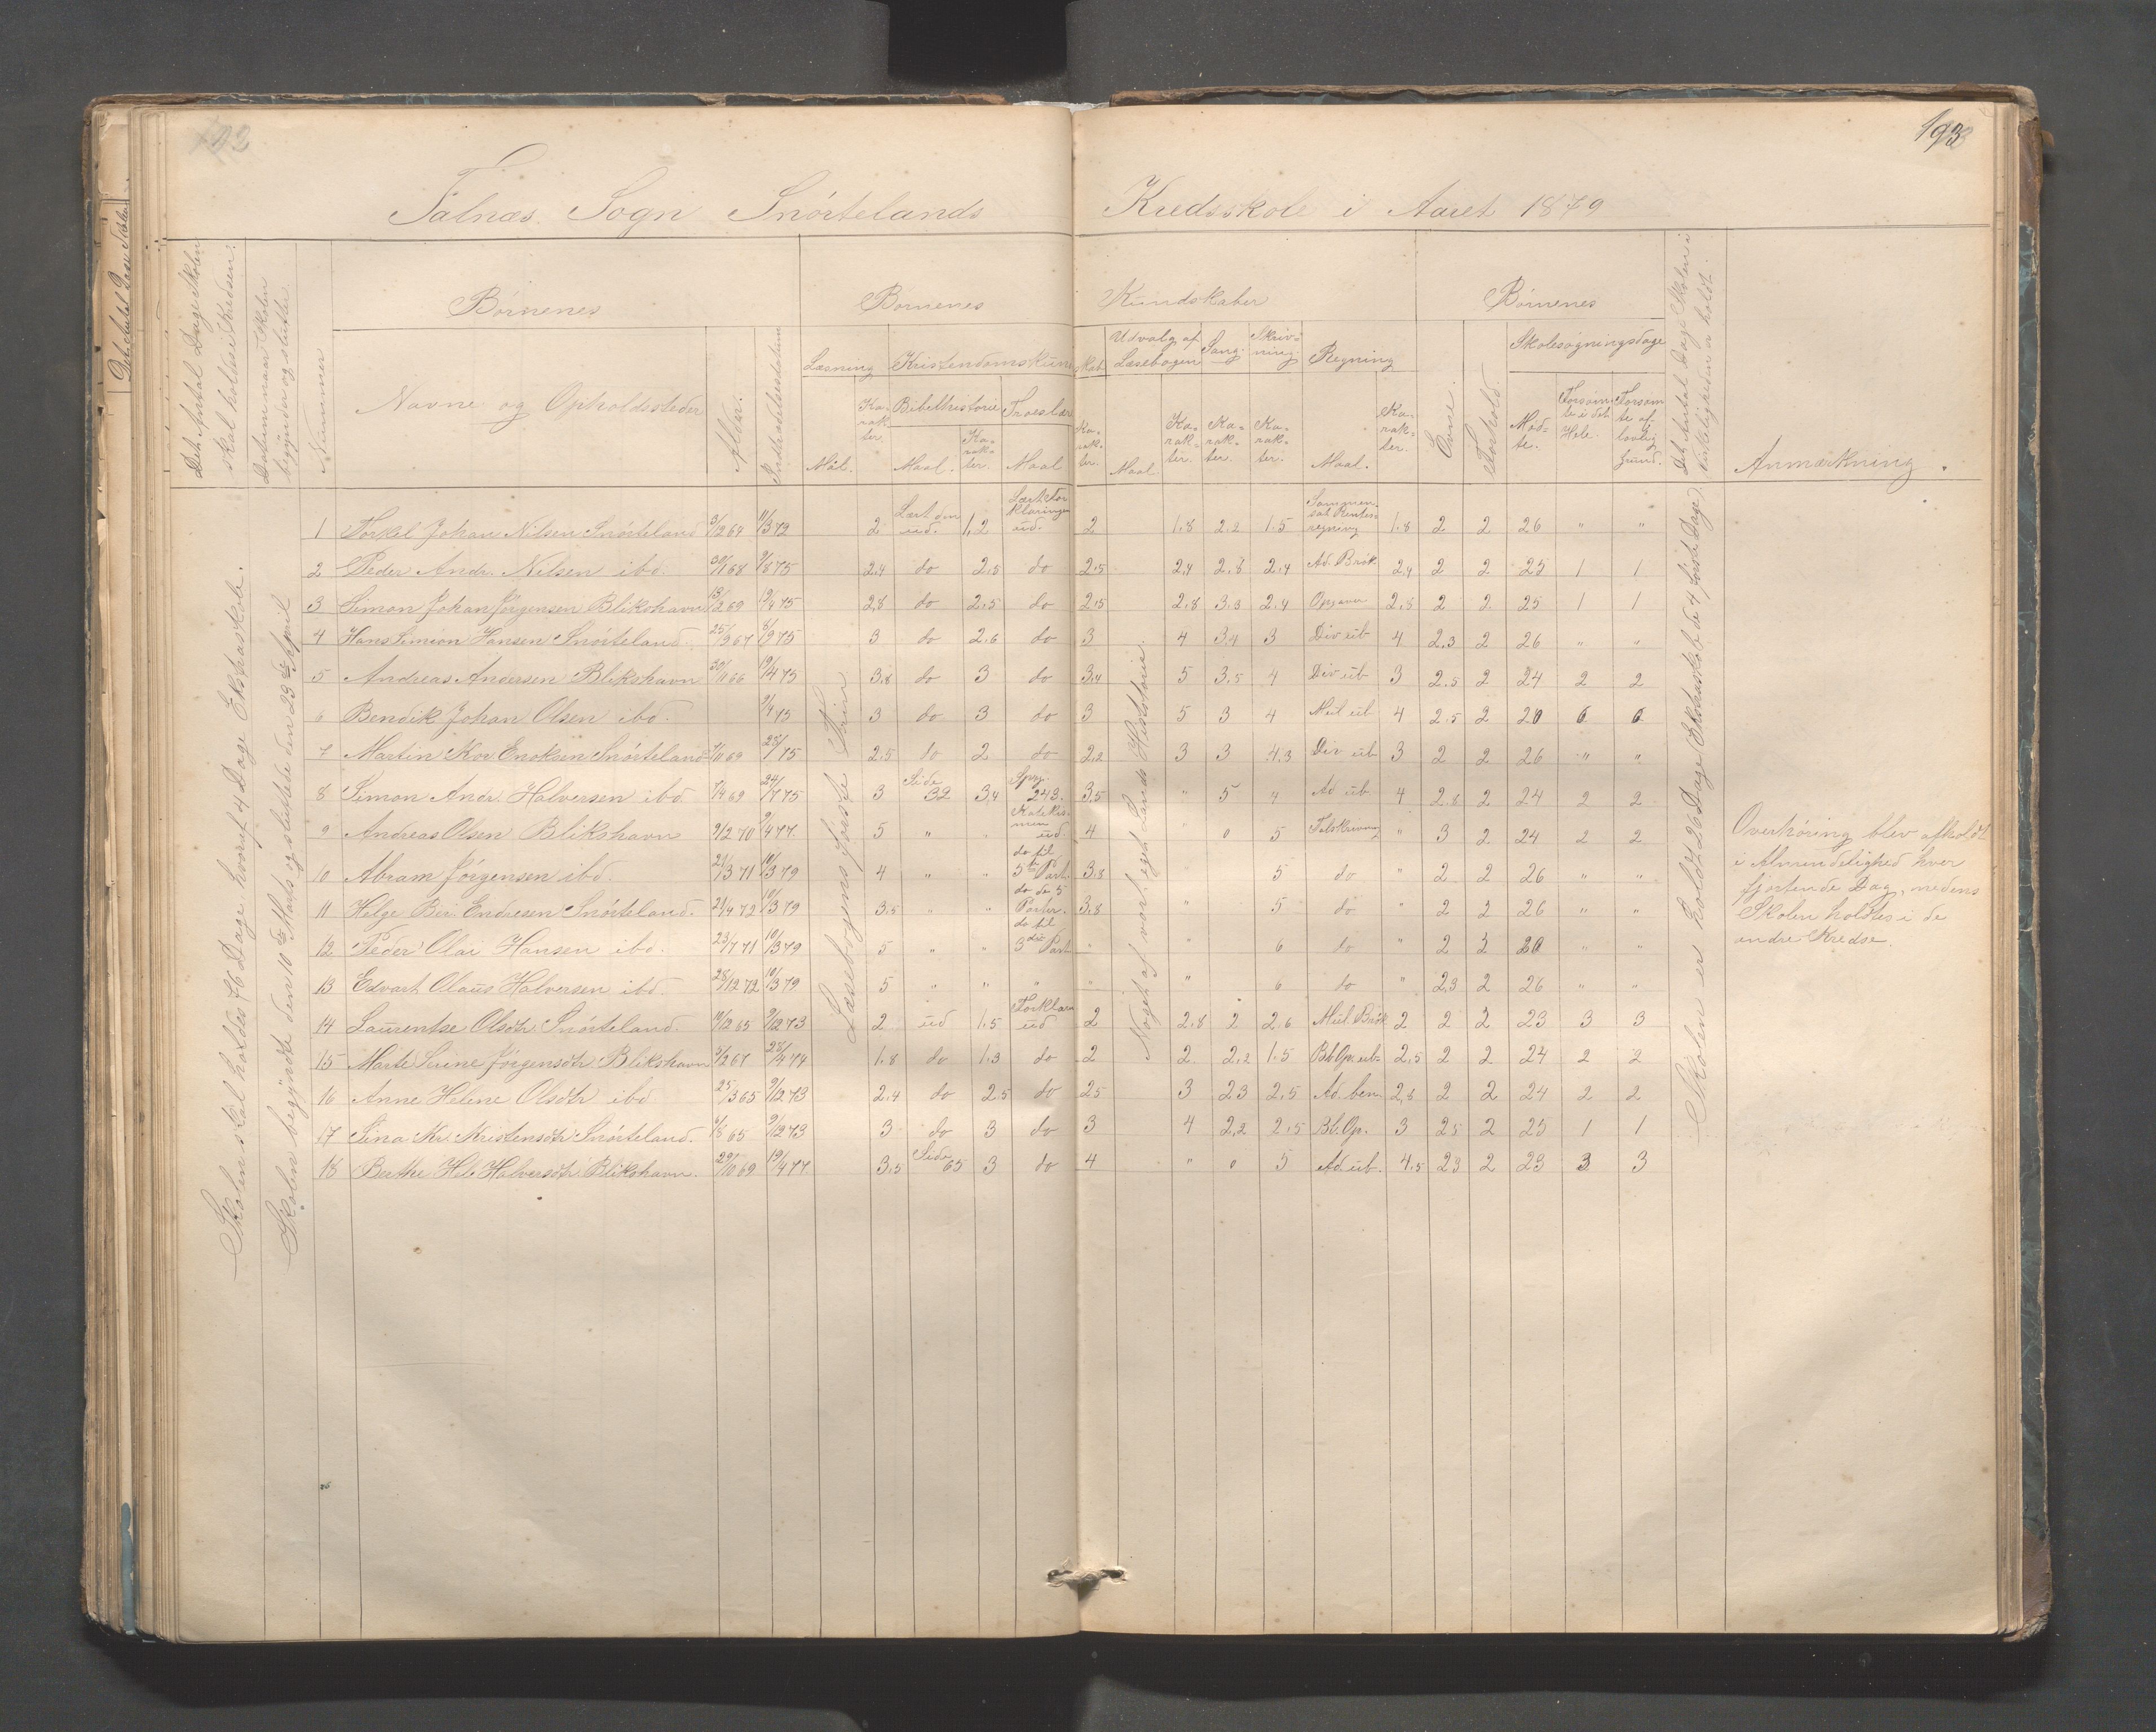 192
193
Falnæs Sogn Snørtelands Kredsskole i Aaret 1879
Det Antal Dage Skolen skal holdes i Kredsen.
Datum naar Skolen begynder og slutter.
Nummer
Børnenes
Navne og Opholdssteder
Alder.
Indtrædelsesdatum
Børnenes Kundskaber
Læsning
Maal.
Karakter.
Kristendomskundskab
Bibelhistorie
Maal.
Karakter.
Troeslære
Maal
Karakter.
Udvalg af Læsebogen
Maal.
Karakter.
Sang.
Karakter.
Skrivning.
Karakter.
Regning
Maal.
Karakter.
Børnenes
Evne.
Forhold.
Skolesøgningsdage
Mødte.
Forsømte i det Hele.
Forsømte af lovlig Grund.
Det Antal Dage Skolen i Virkeligheden er holdt.
Anmærkning.
Skolen skal holdes 76 Dage, hvoraf 4 Dage Ekstraskole.
Skolen begyndte den 10de Marts og sluttede den 23de April
Læsebogens første Trin
Noget af vort eget Lands Historie.
Skolen er holdt 26 Dage (Ekstraskol. de 4 første Dage)
1 Torkel Johan Nilsen Snørteland 3/12 64 11/3 72 2 Lært den ud. 1,2 Lært Forklaringen ud. 2 1.8 2.2 1.5 Sammensat Rentesregning 1.8 2 2 26 " "
2 Peder Andr. Nilsen ibd. 30/1 68 9/8 75 2.4 do 2.5 do 2.5 2,4 2.8 2.4 Ad. Brøk 2,4 2 2 25 1 1
3 Simon Johan Jørgensen Blikshavn 13/2 69 19/4 75 2,8 do 2,5 do 2.5 2.8 3.3 2.4 Opgaver 2,8 2 2 25 1 1
4 Hans Simion Hansen Snørteland 25/9 67 6/9 75 3 do 2.6 do 3 4 3.4 3 Div ub 4 2.3 2 26 " "
5 Andreas Andersen Blikshavn 30/11 66 19/4 75 3.8 do 3 do 3,4 5 3.5 4 Div ub 3 2.5 2 24 2 2
6 Bendik Johan Olsen ibd. 9/4 75 3 do 3 do 3 5 3 4 Mul ub 4 2.5 2 20 6 6
7 Martin Kor. Enoksen Snørteland 7/11 69 75 2.5 do 2 do 2,2 3 3 4.3 Div ub 3 2 2 26 " "
8 Simon Andr. Halversen ibd. 7/4 69 24/7 75 3 Side 32 3,4 Spg. 243. 3,5 " 5 4 Ad ub 4 2.8 2 24 2 2
9 Andreas Olsen Blikshavn 9/2 70 9/4 77. 5 " " Katekismen ud. 4 0 5 Talskrivning " 3 2 24 2 2
10 Abram Jørgensen ibd. 21/3 71 10/3 79 4 " " do til 5te Part. 3.8 5 do " 2 2 26 " "
11 Helge Ber. Endresen Snørteland. 21/4 72 10/3 79 3.5 " " do de 5 Parter. 3,8 " 5 do " 2 2 26 " "
12 Peder Olai Hansen ibd. 23/7 71 10/3 79 5 " " do til 3die Part " 6 do " 2 2 20 " "
13 Edvart Olaus Halversen ibd. 28/12 72 10/3 79 5 " " " " " 6 do " 2,3 2 26 " "
14 Laurentse Olsdtr Snørteland. 10/12 65 9/12 73 2 ud 1.5 Forklaren ud 2 2.8 2 2.6 Mul. Brøk 2 2 2 23 3 3
15 Marte Serine Jørgensdtr Blikshavn 3/2 67 28/4 74 1.8 do 1.3 do 2 2 2,2 1.5 Bb. Op. ub 2.5 2 2 24 2 2
16 Anne Helene Olsdtr ibd 25/3 65 9/12 73 2.4 do 2.5 do 25 3 23 2,5 Ad. ben 2,8 2 2 24 2 2
17 Sina Kr. Kristensdtr Snørteland. 6/8 65 9/12 73 3 do 3 do 3 4 2,2 2.5 Bb. Op. 3 25 2 25 1 1
18 Berthe Hel. Halversdtr Blikshavn. 29/10 69 19/4 77 3,5 Side 65 3 do 4 " 0 5 Ad ub. 4.5 23 2 23 3 3
Overhøring blev afholdt
i Almindelighed hver
fjortende Dag, medens
Skolen holdtes i de
andre Kredse.